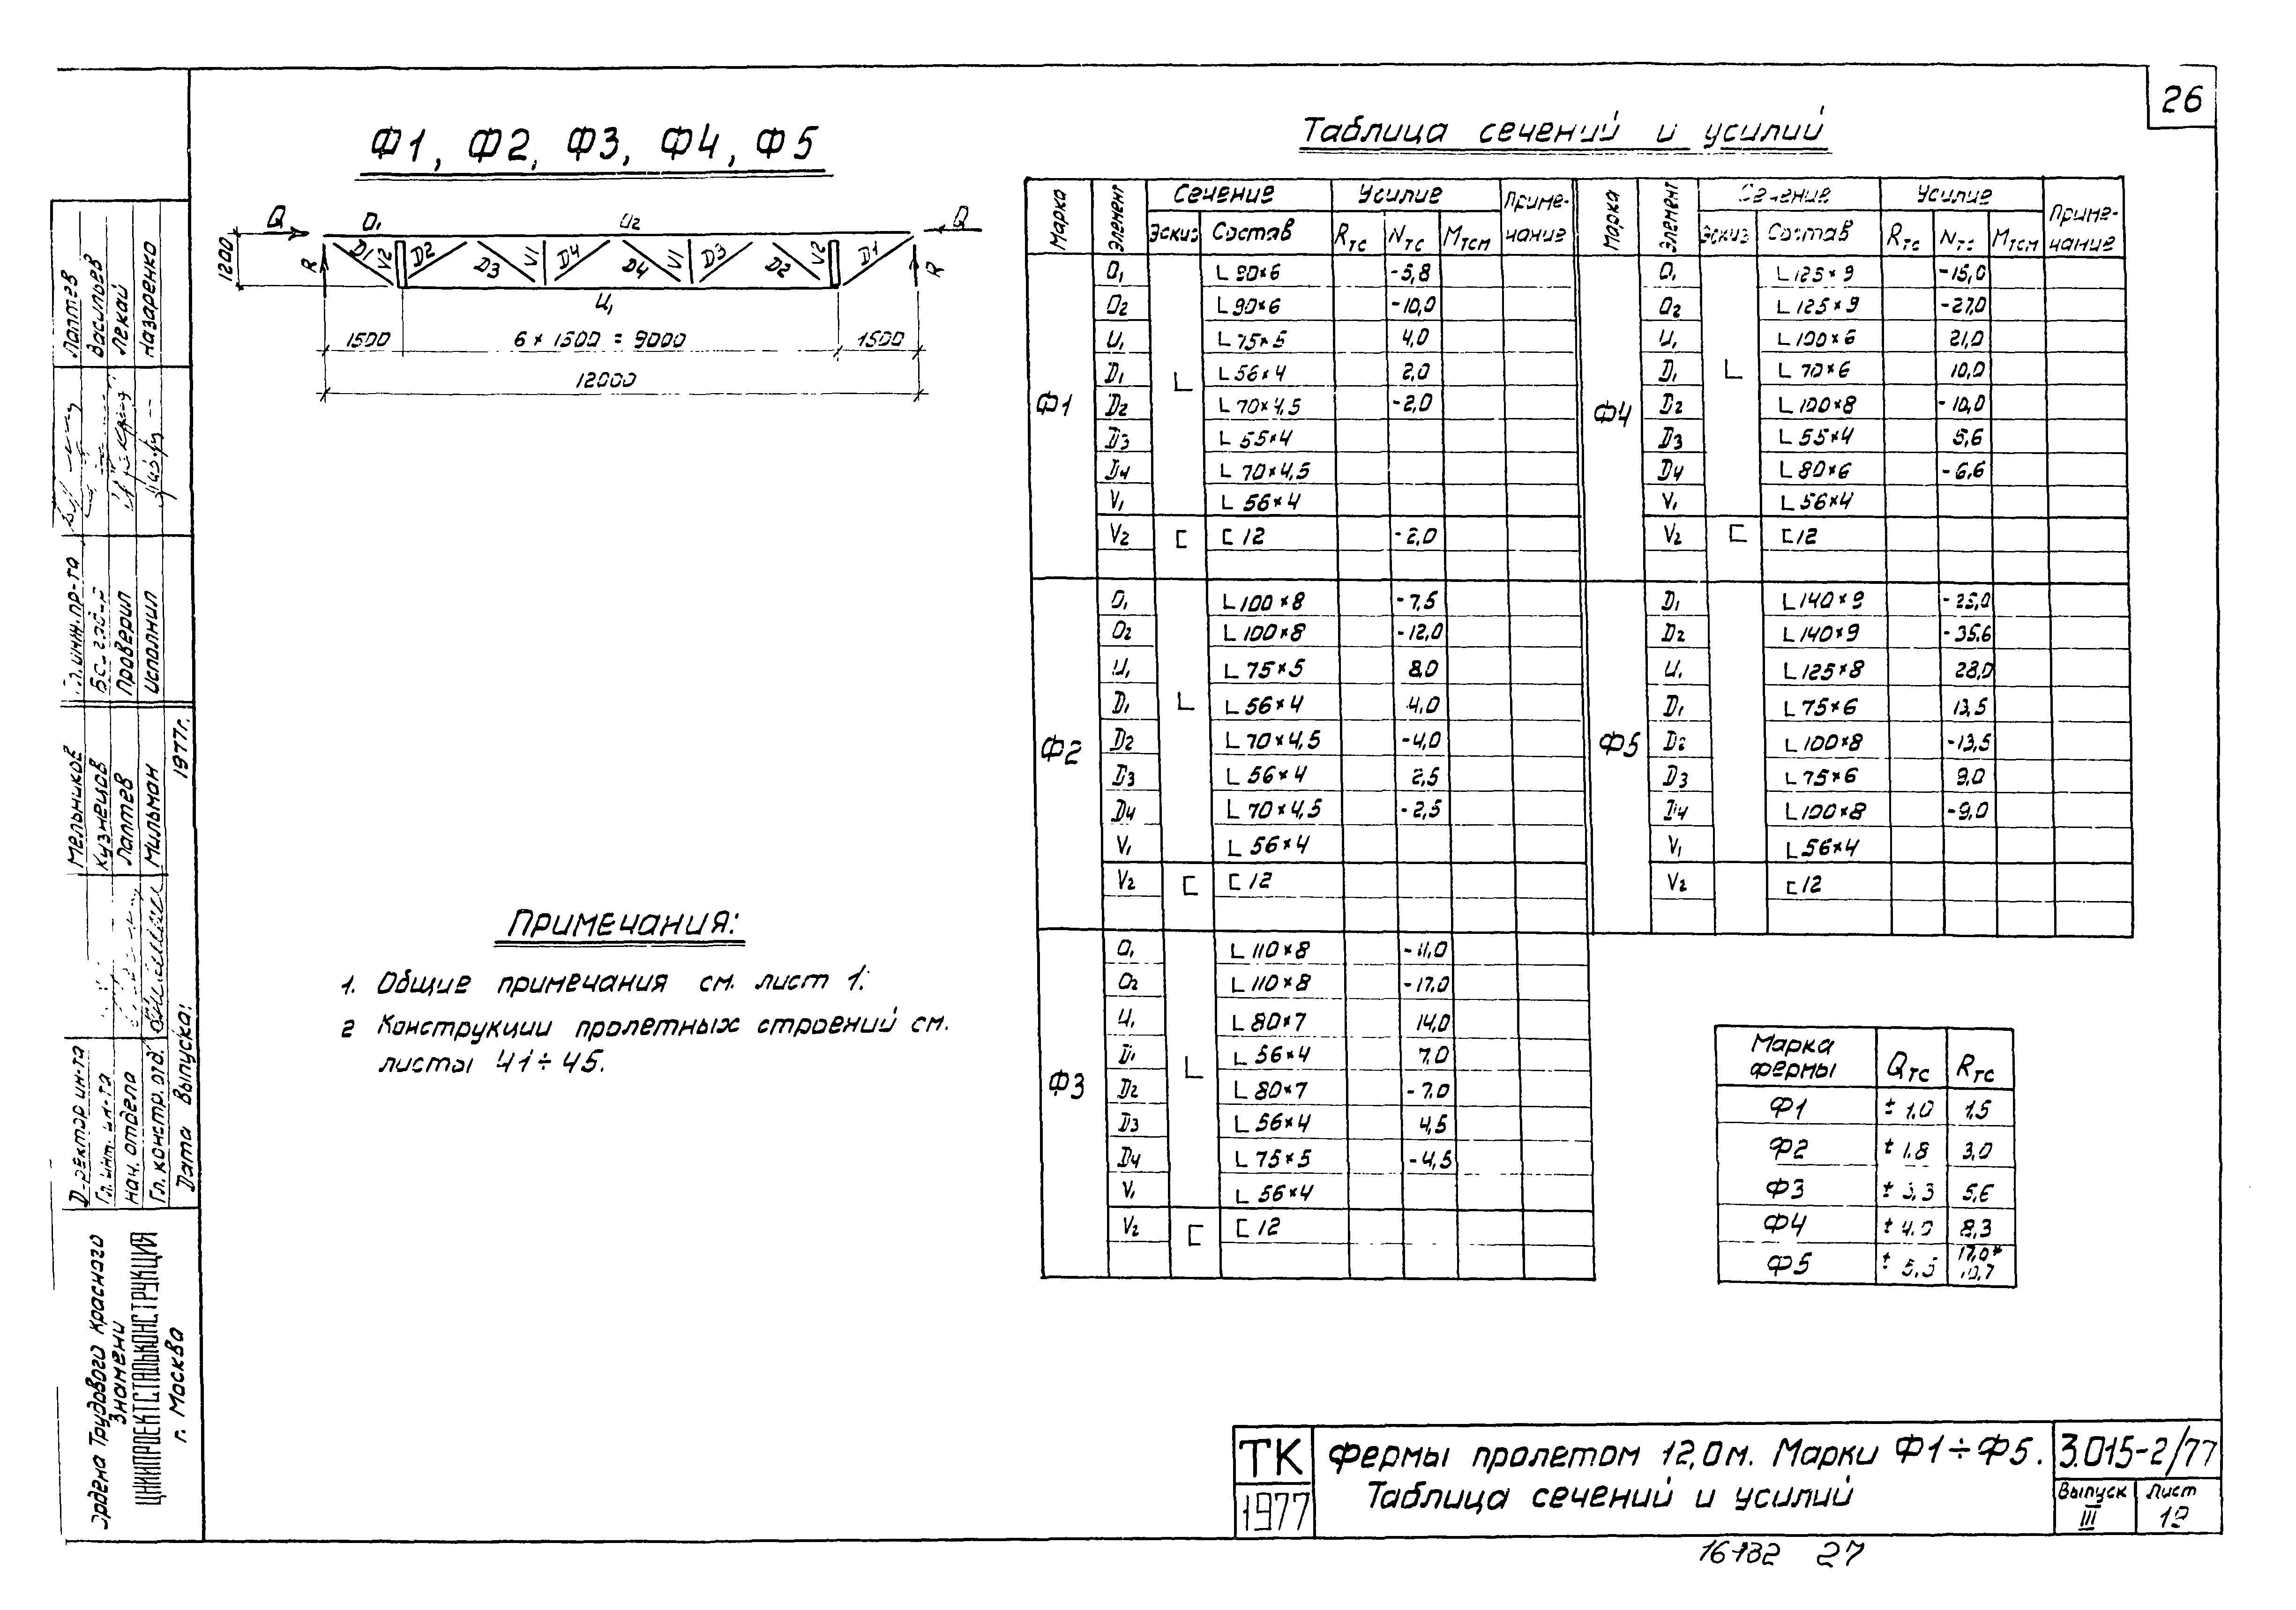 26
Ф1, Ф2, Ф3, Ф4, Ф5
Q O₁ O₂ Q
1200 R D1 V2 D2 D3 V1 D4 D4 V1 D3 D2 V2 D1 R
U₁
1500 6 × 1500 = 9000 1500
12000
Примечания:
1. Общие примечания см. лист 1.
2 Конструкции пролетных строений см.
листы 41÷45.
Таблица сечений и усилий
Марка Элемент Сечение Усилие Приме-чание
Эскиз Состав Rтс Nтс Мтсм
Ф1
O₁ L 90×6 -5,8
O₂ L 90×6 -10,0
U₁ L 75×5 4,0
D₁ L 56×4 2,0
D₂ L 70×4,5 -2,0
D₃ L 55×4
D₄ L 70×4,5
V₁ L 56×4
V₂ [ [ 12 -2,0
Ф2
O₁ L 100×8 -7,5
O₂ L 100×8 -12,0
U₁ L 75×5 8,0
D₁ L 56×4 4,0
D₂ L 70×4,5 -4,0
D₃ L 56×4 2,5
D₄ L 70×4,5 -2,5
V₁ L 56×4
V₂ [ [ 12
Ф3
O₁ L 110×8 -11,0
O₂ L 110×8 -17,0
U₁ L 80×7 14,0
D₁ L 56×4 7,0
D₂ L 80×7 -7,0
D₃ L 56×4 4,5
D₄ L 75×5 -4,5
V₁ L 56×4
V₂ [ [ 12
Марка Элемент Сечение Усилие Приме-чание
Эскиз Состав Rтс Nтс Мтсм
Ф4
O₁ L 125×9 -15,0
O₂ L 125×9 -27,0
U₁ L 100×6 21,0
D₁ L 70×6 10,0
D₂ L 100×8 -10,0
D₃ L 55×4 5,6
D₄ L 80×6 -6,6
V₁ L 56×4
V₂ [ [ 12
Ф5
D₁ L 140×9
D₂ L 140×9 -35,6
U₁ L 125×8 28,0
D₁ L 75×6 13,5
D₂ L 100×8 -13,5
D₃ L 75×6 9,0
D₄ L 100×8 -9,0
V₁ L 56×4
V₂ [ 12
Марка фермы Qтс Rтс
Ф1 ± 1,0 1,5
Ф2 ± 1,8 3,0
Ф3 ± 3,3 5,6
Ф4 ± 4,0 8,3
Ф5 ± 5,5 17,0* 10,7
ТК
1977
Фермы пролетом 12,0м. Марки Ф1÷Ф5.
Таблица сечений и усилий
3.015-2/77
Выпуск III
Лист 19
16732 27
Лаптев
Васильев
Лекай
Назаренко
Гл. инж. пр-та
Проверил
Исполнил
Мельников
Кузнецов
Лаптев
Мильман
1977г.
Директор ин-та
Гл. инж. ин-та
Нач. отдела
Гл. констр. отд.
Дата выпуска:
Ордена Трудового Красного
Знамени
ЦНИИПРОЕКТСТАЛЬКОНСТРУКЦИЯ
г. Москва